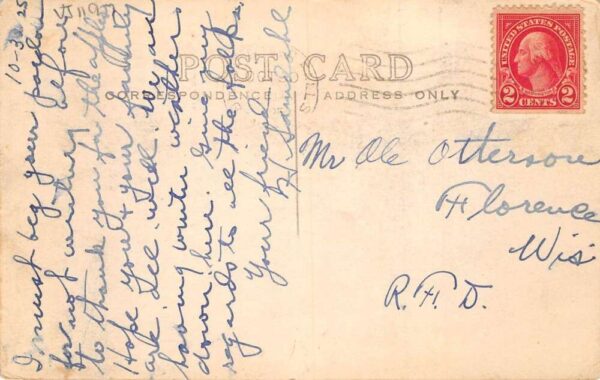 I must beg your pardon
for not writing before
to thank you for the apples
Hope you & your family
are all well. We are
having winter weather
down here. Give my
regards to all the folks.
Your friend
POST CARD
CORRESPONDENCE
ADDRESS ONLY
UNITED STATES POSTAGE
2 CENTS 2
Mr Ole Otterson
Florence
Wis
R.F.D.